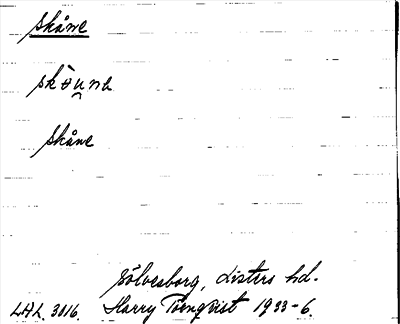 skåne
skò̵u̯nə
skåne
Sölvesborg, Listers hd.
LAL. 3016. Harry Törnqvist 1933-6.